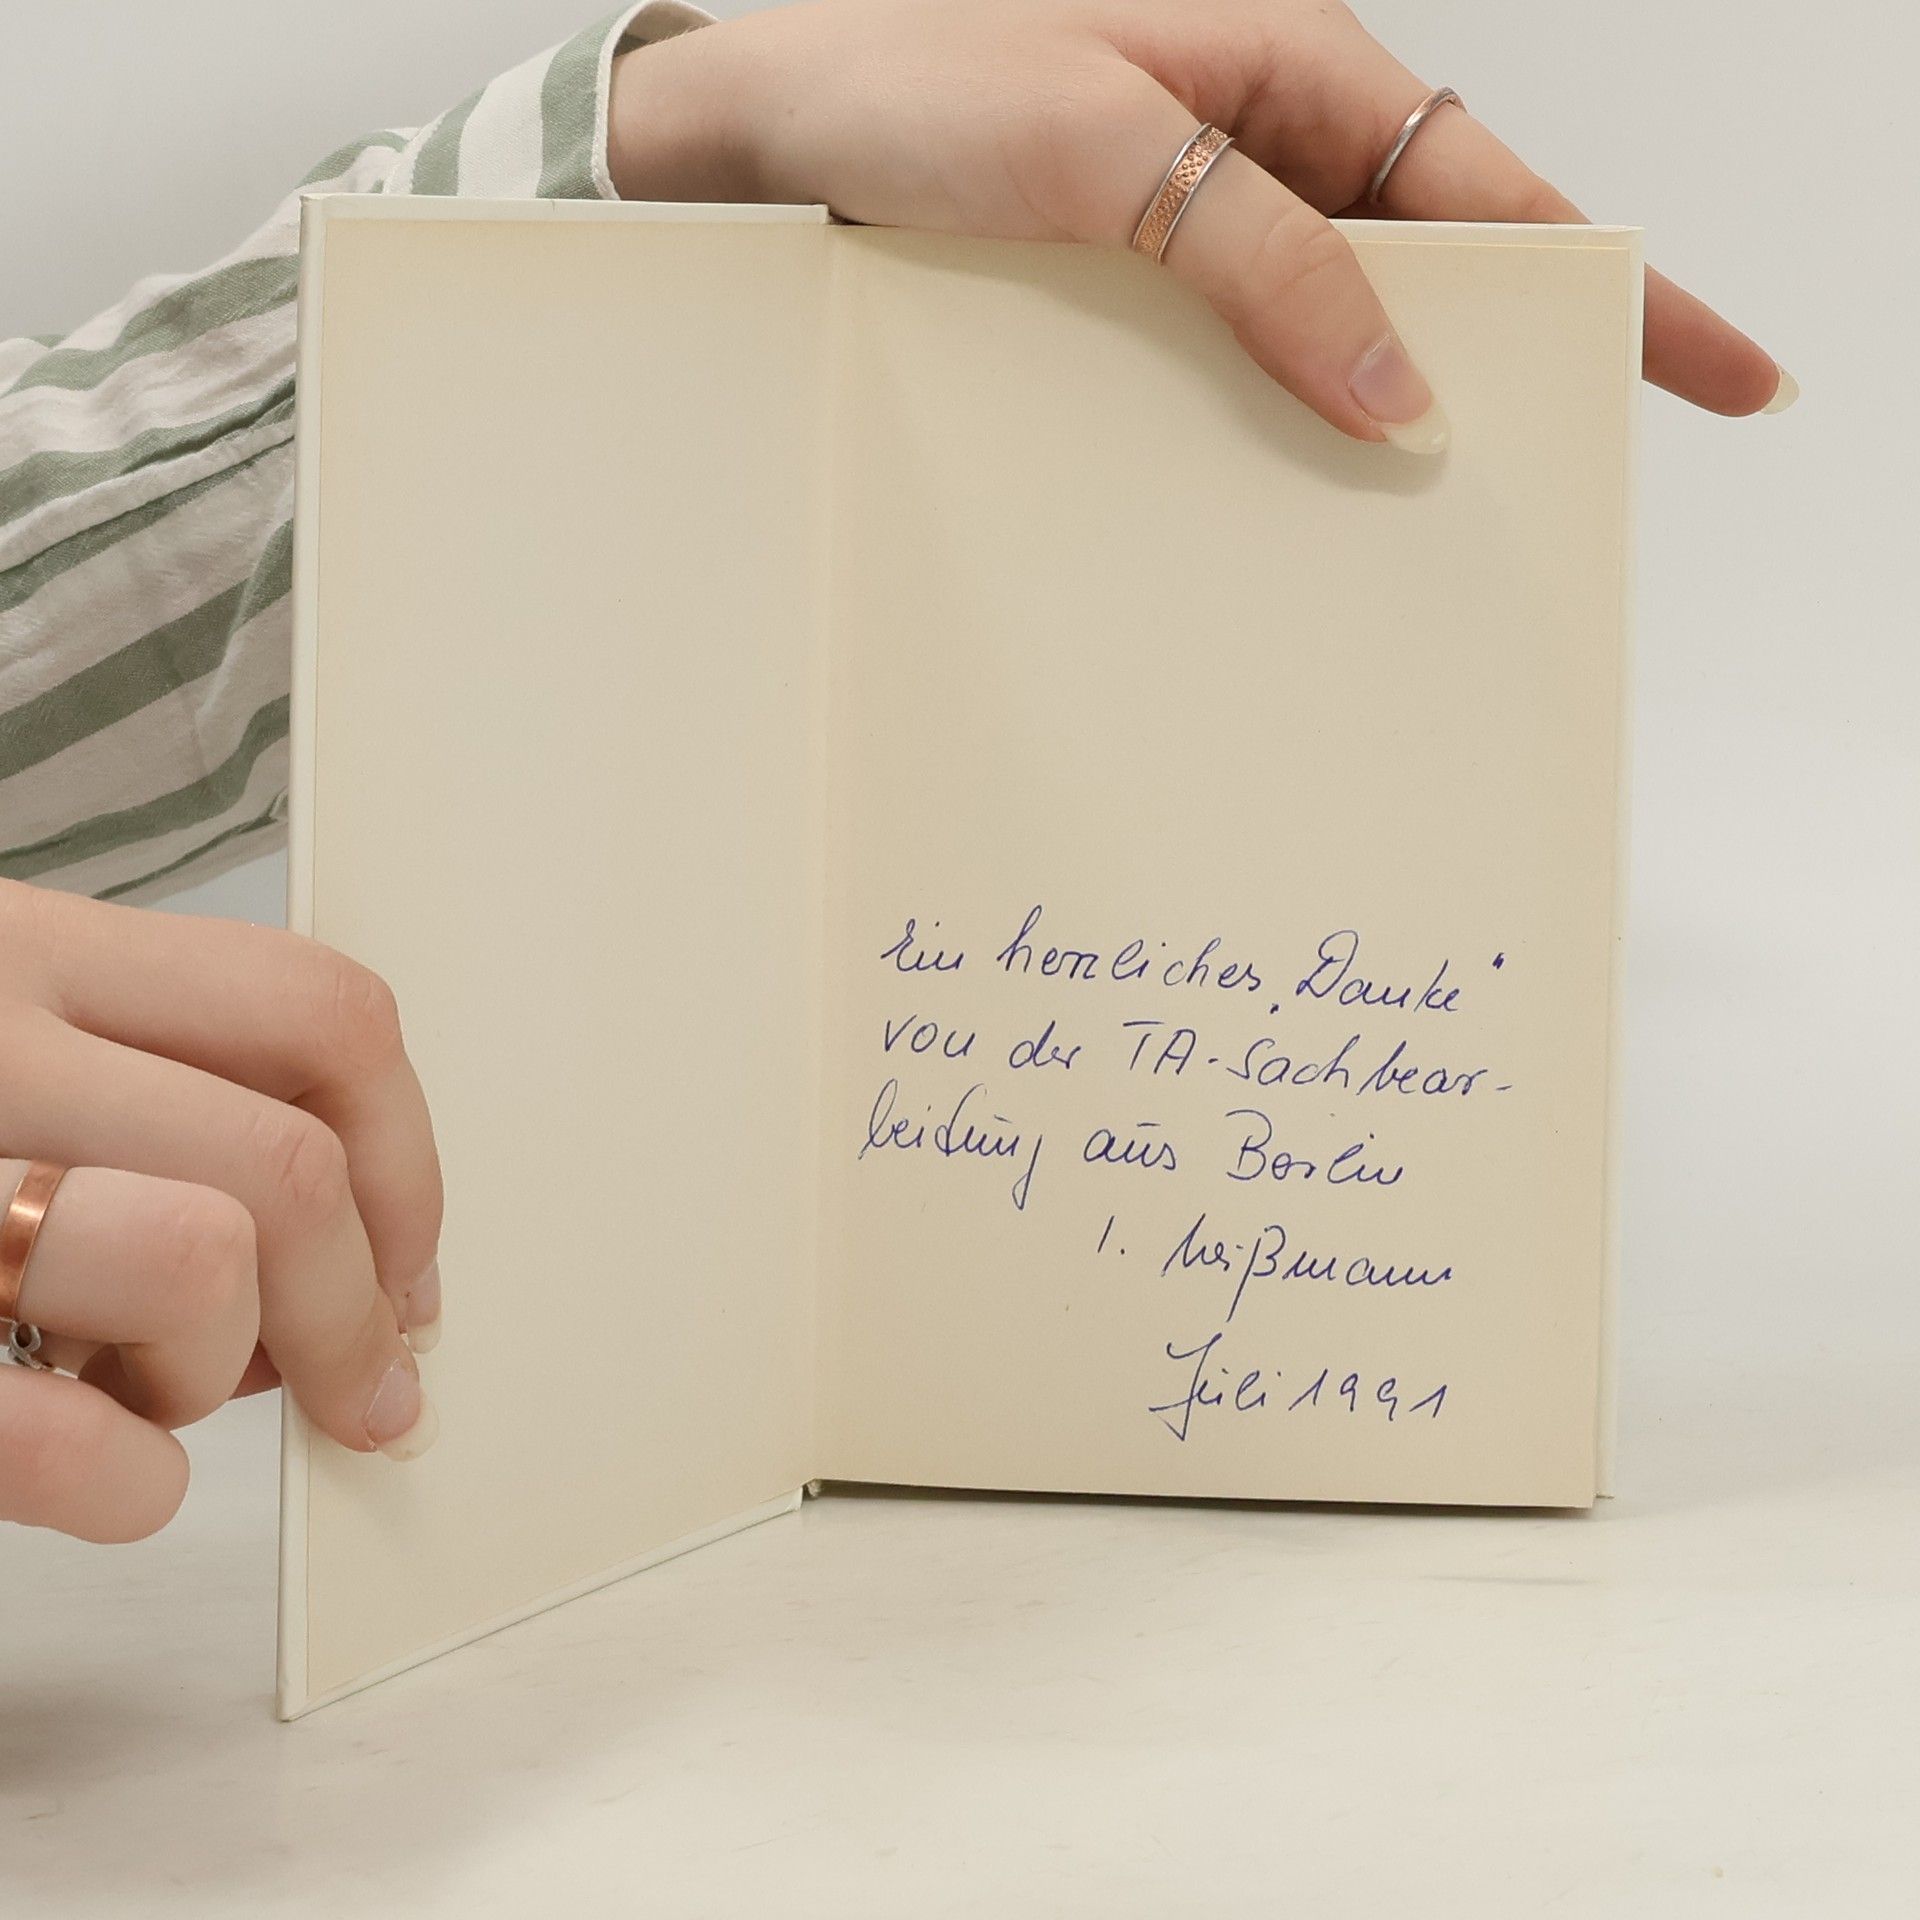 Ein herzliches „Danke“
von der TA-Sachbear-
beitung aus Berlin
I.
Juli 1991